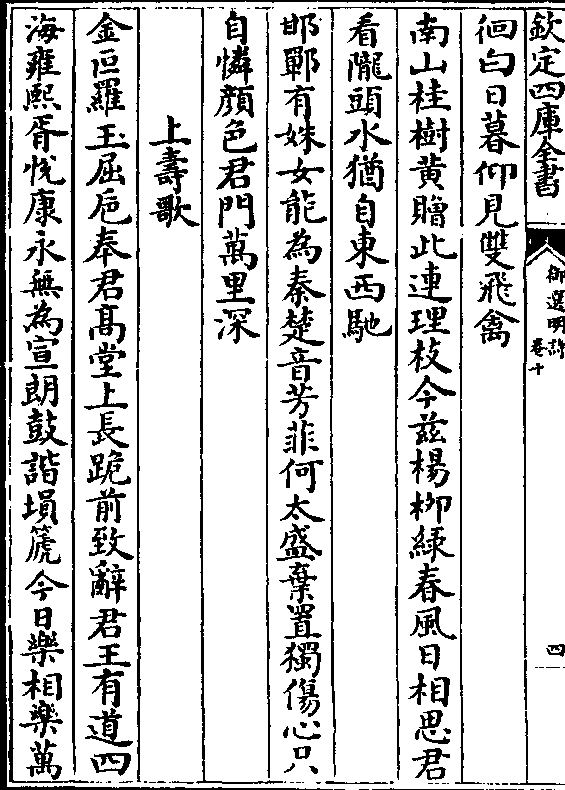 欽定四庫全書
御選明詩
卷十
四
徊白日暮仰見雙飛禽
南山桂樹黄贈此連理枝今兹楊柳緑春風日相思君
看隴頭水猶自東西馳
邯鄲有姝女能為秦楚音芳菲何太盛棄置獨傷心只
自憐顔色君門萬里深
上壽歌
金叵羅玉屈卮奉君髙堂上長跪前致辭君王有道四
海雍熙胥悅康永無為宣朗鼓諧塤篪今日樂相樂萬